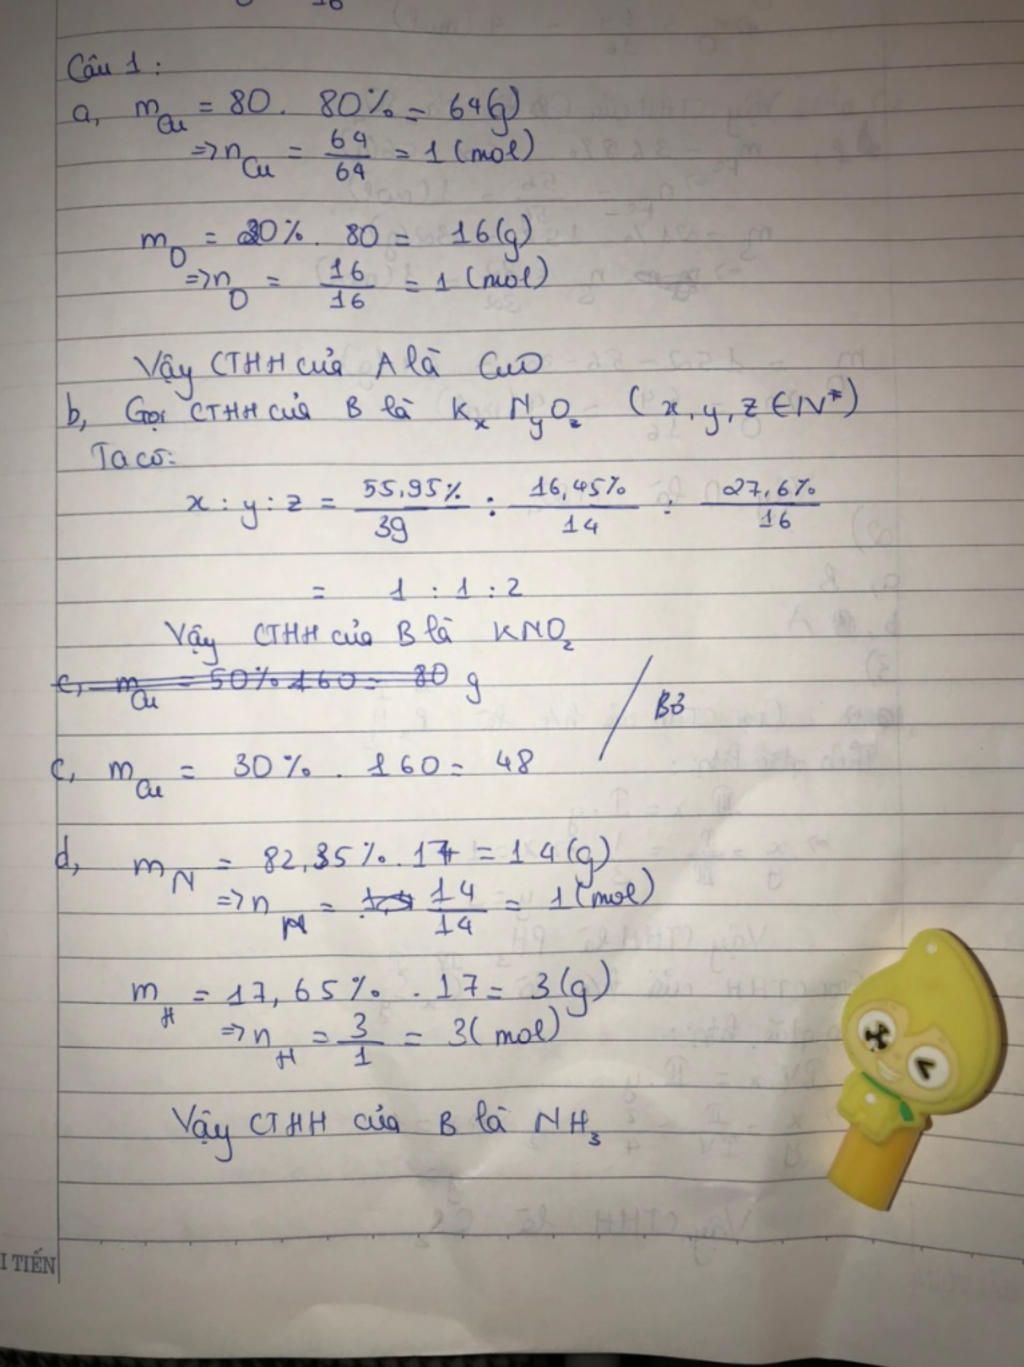 16
Câu 1:
a, mCu = 80. 80% = 64(g)
=> nCu = 64/64 = 1 (mol)
mO = 20%. 80 = 16(g)
=> nO = 16/16 = 1 (mol)
Vậy CTHH của A là CuO
b, Gọi CTHH của B là KxNyOz (x,y,z ∈ N*)
Ta có:
x : y : z = 55,95%/39 : 16,45%/14 : 27,6%/16
= 1 : 1 : 2
Vậy CTHH của B là KNO2
c, mCu = 50%.160 = 80 g
Bỏ
c, mCu = 30%. 160 = 48
d, mN = 82,35%.17 = 14(g)
=> nN = 14/14 = 1(mol)
mH = 17,65%.17 = 3(g)
=> nH = 3/1 = 3(mol)
Vậy CTHH của B là NH3
I TIẾN